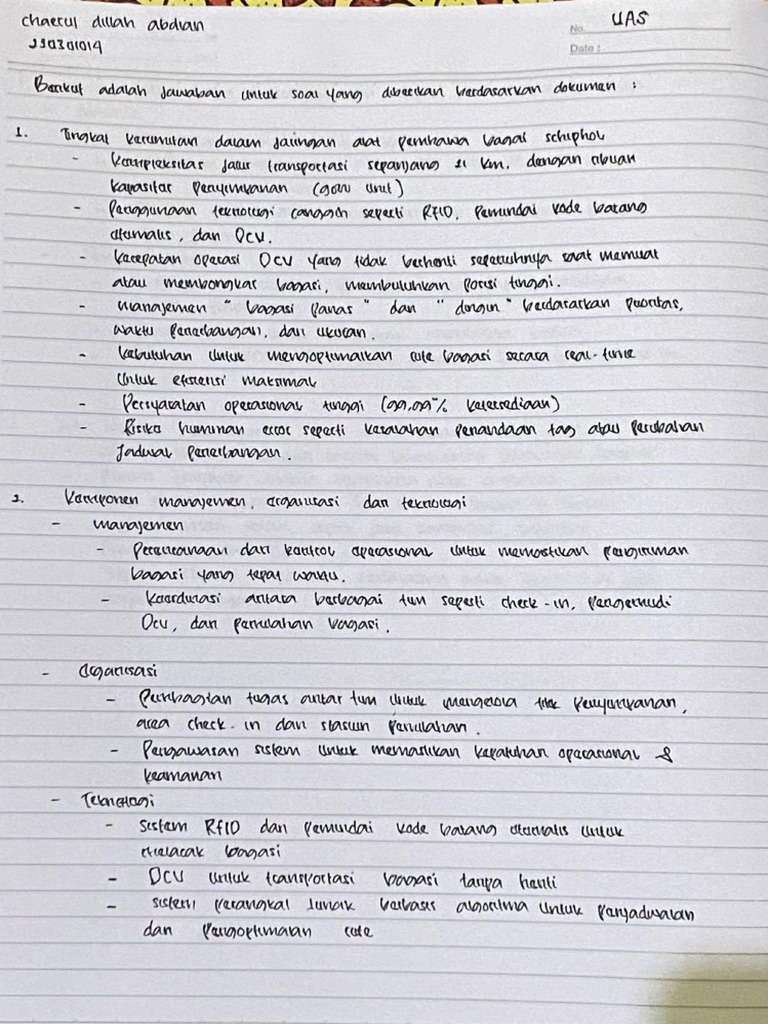 chaerul dillah abdian
No. UAS
230301014
Date :
Berikut adalah jawaban untuk soal yang diberikan berdasarkan dokumen :
1. Tingkat kerumitan dalam jaringan alat pembawa bagasi schiphol
- kompleksitas jalur transportasi sepanjang 21 km, dengan ribuan
kapasitas penyimpanan (9000 unit)
- Penggunaan teknologi canggih seperti RFID, Pemindai kode batang
otomatis, dan DCV.
- kecepatan operasi DCV yang tidak berhenti sepenuhnya saat memuat
atau membongkar bagasi, membutuhkan presisi tinggi.
- manajemen "bagasi panas" dan "dingin" berdasarkan prioritas,
waktu penerbangan, dan ukuran.
- kebutuhan untuk mengoptimalkan rute bagasi secara real-time
untuk efisiensi maksimal
- Persyaratan operasional tinggi (99,99% ketersediaan)
- Risiko humman error seperti kesalahan penandaan tag atau perubahan
jadwal penerbangan.
2. Komponen manajemen, organisasi dan teknologi
- manajemen
- Perencanaan dan kontrol operasional untuk memastikan pengiriman
bagasi yang tepat waktu.
- koordinasi antara berbagai tim seperti check-in, pengemudi
DCV, dan pemilahan bagasi.
- Organisasi
- Pembagian tugas antar tim untuk mengelola titik penyimpanan,
area check-in dan stasiun pemilahan.
- Pengawasan sistem untuk memastikan kepatuhan operasional &
keamanan
- Teknologi
- sistem RFID dan pemindai kode batang otomatis untuk
melacak bagasi
- DCV untuk transportasi bagasi tanpa henti
- sistem perangkat lunak berbasis algoritma untuk penjadwalan
dan pengoptimalan rute